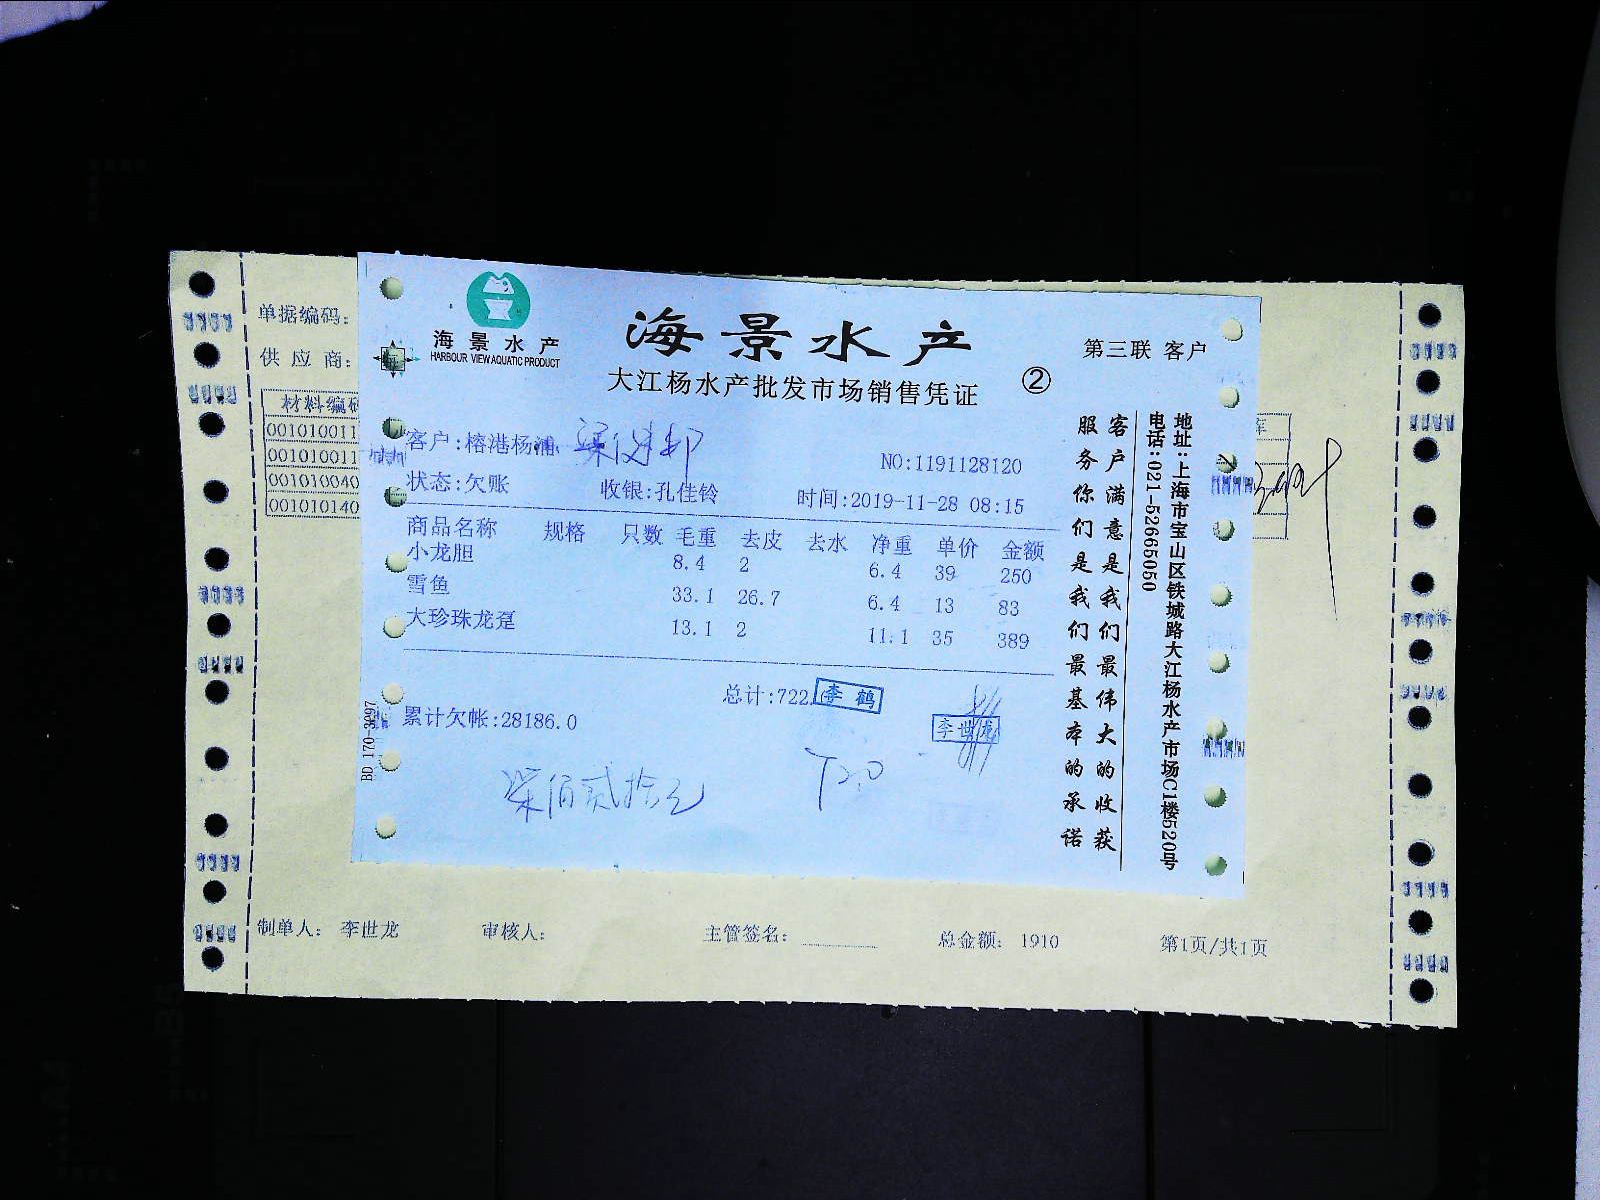 单据编码:
供 应 商:
材料编码
00101001
00101001
001010040
001010140
海景水产
HARBOUR VIEW AQUATIC PRODUCT
海景水产
第三联 客户
大江杨水产批发市场销售凭证 ②
客户:榕港杨浦
NO:1191128120
状态:欠账 收银:孔佳铃 时间:2019-11-28 08:15
商品名称 规格 只数 毛重 去皮 去水 净重 单价 金额
小龙胆 8.4 2 6.4 39 250
雪鱼 33.1 26.7 6.4 13 83
大珍珠龙趸 13.1 2 11.1 35 389
总计:722. 李鹤
李世龙
累计欠帐:28186.0
柒佰贰拾元 720
BD 170-3097
客户满意是我们最伟大的收获
服务你们是我们最基本的承诺
地址:上海市宝山区铁城路大江杨水产市场C1楼520号
电话:021-52665050
制单人: 李世龙 审核人: 主管签名: 总金额: 1910 第1页/共1页